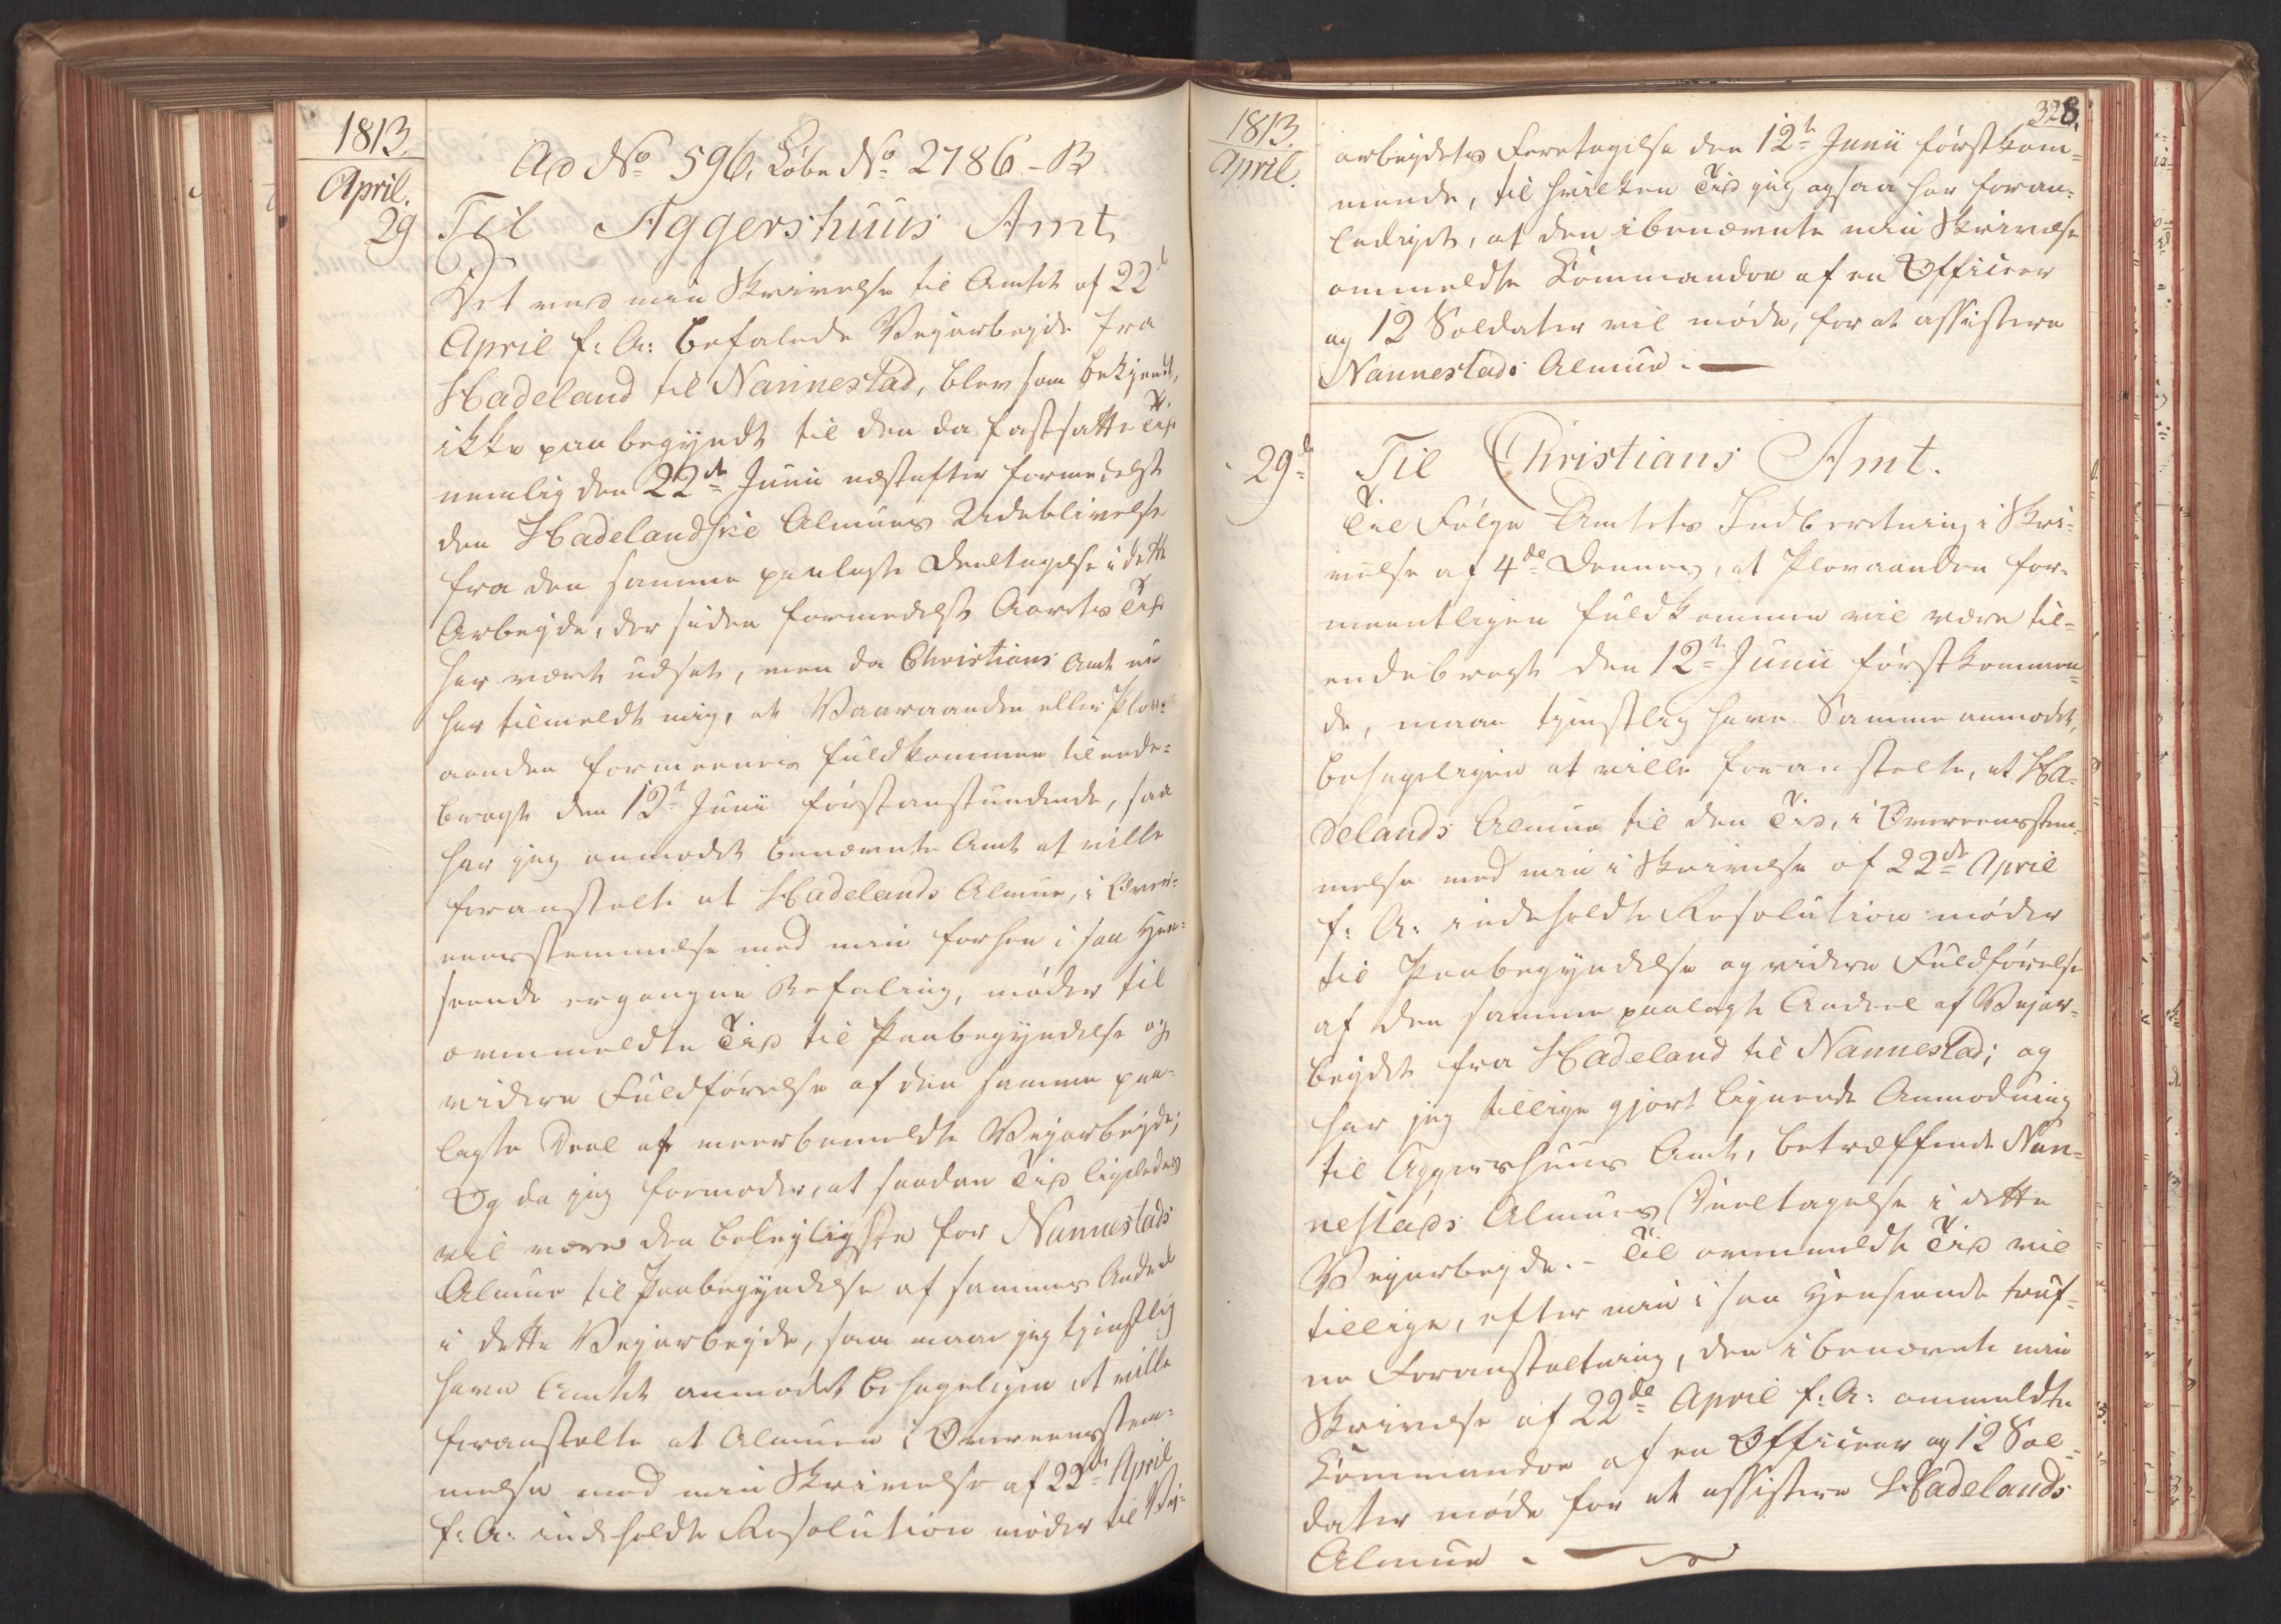 1813.
April.
29
Ad No 596, Löbe No 2786-B
Til Aggershuus Amt
Det ved min Skrivelse til Amtet af 22d
April f: A: befalede Vejarbeyde fra
Hadeland til Nannestad, blev som bekjendt,
ikke paabegyndt til den da fastsatte Tid
nemlig den 22de Junii næstefter formedelst
den Hadelandske Almues Udeblivelse
fra den samme paalagte Deeltagelse i dette
Arbeyde, der siden formedelst Aarets Tid
har været udsat, men da Christians Amt nu
har tilmeldt mig, at Vaaraanden eller Plov-
aanden formeenes fuldkommen tilende-
bragt den 12te Junii förstanstundende, saa
har jeg anmodet benævnte Amt at ville
foranstalte at Hadelands Almue, i Over-
eensstemmelse med min forhen i saa Hen-
seende ergangne Befaling, møder til
ovenmeldte Tid til Paabegyndelse og
videre Fuldförelse af den samme paa-
lagte Deel af meerbemeldte Vejarbeyde;
Og da jeg formoder, at saadan Tid ligeledes
vil være den beleyligste for Nannestads
Almue til Paabegyndelse af sammes Andeel
i dette Vejarbeyde, saa maae jeg tjenstlig
have Amtet anmodet behageligen at ville
foranstalte at Almuen i Overeensstem-
melse med min Skrivelse af 22de April
f: A: indeholdte Resolution møder til Vej-
1813.
April.
328.
arbeydets Foretagelse den 12te Junii förstkom-
mende, til hvilken Tid jeg ogsaa har foran-
lediget, at den i benævnte min Skrivelse
ommeldte Commandoe af en Officeer
og 12 Soldater vil møde, for at assistere
Nannestads Almue.
29de
Til Christians Amt.
Til Fölge Amtets Indberetning i Skri-
velse af 4de Dennes, at Plovaanden for-
meentligen fuldkommen vil være til-
endebragt den 12te Junii förstkommen-
de, maae tjenstlig have Samme anmodet,
behageligen at ville foranstalte, at Ha-
delands Almue til den Tid, i Overeensstem-
melse med min i Skrivelse af 22de April
f: A: indeholdte Resolution møder
til Paabegyndelse og videre Fuldförelse
af den samme paalagte Andeel af Vejar-
beydet fra Hadeland til Nannestad; og
har jeg tillige gjort lignende Anmodning
til Aggershuus Amt, betræffende Nan-
nestads Almues Deeltagelse i dette
Vejarbeyde. - Til ovenmeldte Tid vil
tillige, efter min i saa Henseende truf-
ne Foranstaltning, den i benævnte min
Skrivelse af 22de April f: A: ommeldte
Commandoe af en Officeer og 12 Sol-
dater møde for at assistere Hadelands
Almue.